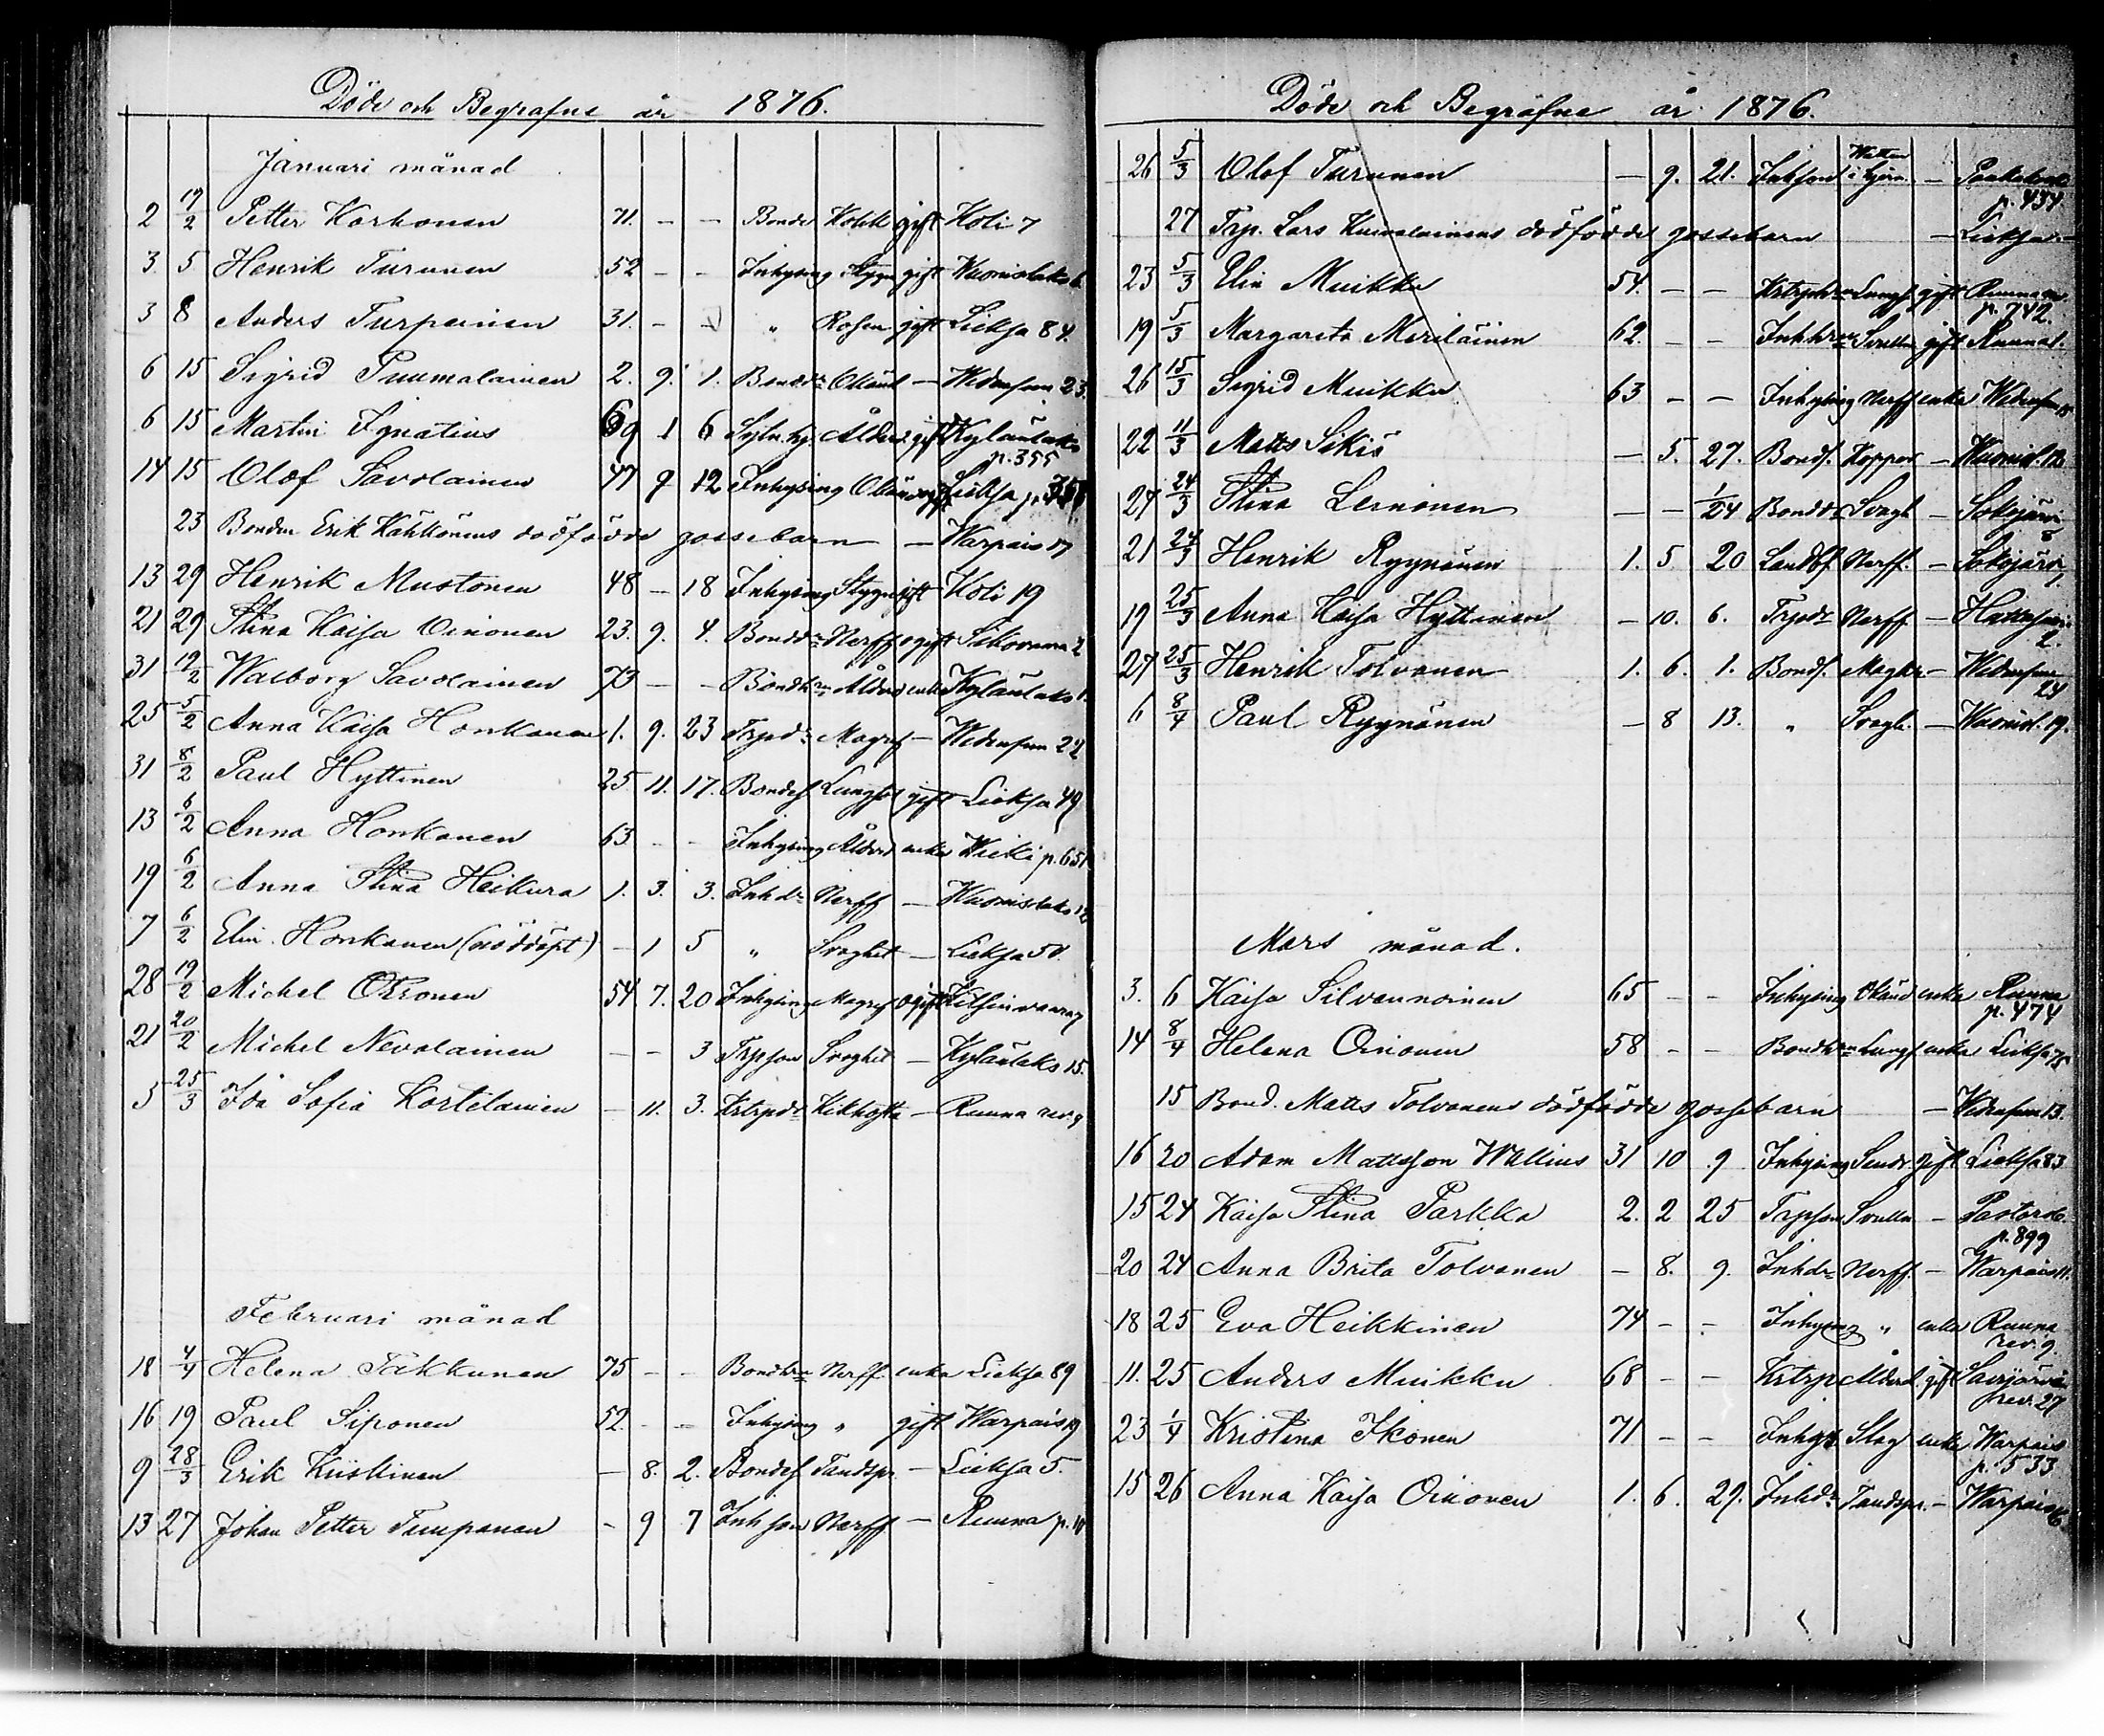 Döde och Begrafne år 1876.
Januari månad
2 19/2 Petter Korhonen 71. - - Bonde Kolik gift Koli 7
3. 5 Henrik Turunen 52 - - Inhysing Stygn gift Wuonislaks 6
3 8 Anders Turpeinen 31. - - " Rosen gift Lieksa 84.
6 15 Sigrid Puumalainen 2. 9. 1. Bondedr Okänd - Widensuu 23
6 15 Martin Ignatius 69 1 6 Sytn.hj. Ålderd gift Kylänlaks p. 355
14 15 Olof Savolainen 47 9 12 Inhysing Okänd ogift Lieksa p.
23 Bonden Erik Kähkönens dödfödde gossebarn - Warpais 17
13 29 Henrik Mustonen 48 - 18 Inhysing Stygn gift Koli 19
21 29 Stina Kaisa Oinonen 23. 9. 4. Bondedr Nerff ogift Sikovaara 2
31 19/2 Walborg Savolainen 73 - - Bondhru Ålderd enka Kylänlaks 1.
25 5/2 Anna Kaisa Honkanen 1. 9. 23 Trpdr Magref - Widensuu 22
31 8/2 Paul Hyttinen 25 11. 17. Bondes Lungsot gift Lieksa 49
13 6/2 Anna Honkanen 63 - - Inhysing Ålderd enka Wieki p. 651
19 6/2 Anna Stina Heikura 1. 3. 3. Inhdr Nerff - Wuonislaks 12
7 6/2 Elin Honkanen (nöddöpt) - 1 5 " Svaghet - Lieksa 50.
28 19/2 Michel Okronen 54 7. 20 Inhysing Magref ogift Kitsinvaara 7
21 20/2 Michel Nevalainen - - 3 Trpson Svaghet - Kylänlaks 15.
5 25/3 Ida Sofia Kortelainen - 11. 3. Krtrpdr Kikhosta - Ruuna rev. 9
Februari månad
18 4/4 Helena Takkunen 75 - - Bondhru Nerff. enka Lieksa 89
16 19 Paul Siponen 52. - - Inhysing " gift Warpais 19
9 28/3 Erik Kiiskinen - 8. 2. Bondes Tandspr. - Lieksa 5.
13 27 Johan Petter Timponen - 9 7 Inhson Nerff - Ruuna p. 10
Döde och Begrafne år 1876.
26 5/3 Olof Turunen - 9. 21. Inhson Watten i hjern. - p. 434
27 Trp. Lars Kuivalainens dödfödde gossebarn - Lieksa
23 5/3 Elin Muikku 54. - - Krtrphru Lungs. gift Ruuna p. 742.
19 5/3 Margareta Meriläinen 62. - - Inhhru Svulln gift Ruuna
26 15/3 Sigrid Muikku 63 - - Inhysing Nerff enka Widensuu 15
22 11/3 Matts Sikiö - 5. 27. Bonds. Koppor - Wuonisl. 12
27 24/3 Stina Lernonen - - 1/24 Bonddr Svagh - Sokojärvi
21 24/3 Henrik Ryynänen 1. 5 20 Landbf. Nerff. - Sokojärvi 1.
19 25/3 Anna Kaisa Hyttinen - 10. 6. Trpdr Nerff - Hattusaari 2.
27 25/3 Henrik Tolvanen 1. 6. 1. Bonds. Magkr - Widensuu 24
6 8/4 Paul Ryynänen - 8 13. " Svagh. - Wuonisl. 19.
Mars månad.
3. 6 Kaisa Silvennoinen 65 - - Inhysing Okänd enka Ruuna p. 474
14 8/4 Helena Oinonen 58 - - Bondhru Lungs enka Lieksa 75
15 Bond. Matts Tolvanens dödfödde gossebarn - Widensuu 13.
16 20 Adam Mattsson Wallius 31 10 9 Inhysing gift Lieksa 83
15 24 Kaisa Stina Parkka 2. 2 25 Trpson Svulln - p. 899
20 24 Anna Brita Tolvanen - 8. 9. Inhdr Nerff. - Warpais 11.
18 25 Eva Heikkinen 74 - - Inhysing " enka Ruuna rev. 9.
11. 25 Anders Muikku 68 - - Krtrp Ålderd. gift Savijärvi rev. 27
23 1/4 Kristina Ikonen 71 - - Inhys Slag enka Warpais p. 533
15 26 Anna Kaisa Oinonen 1. 6. 29. Inhdr Tandspr. - Warpais 16.